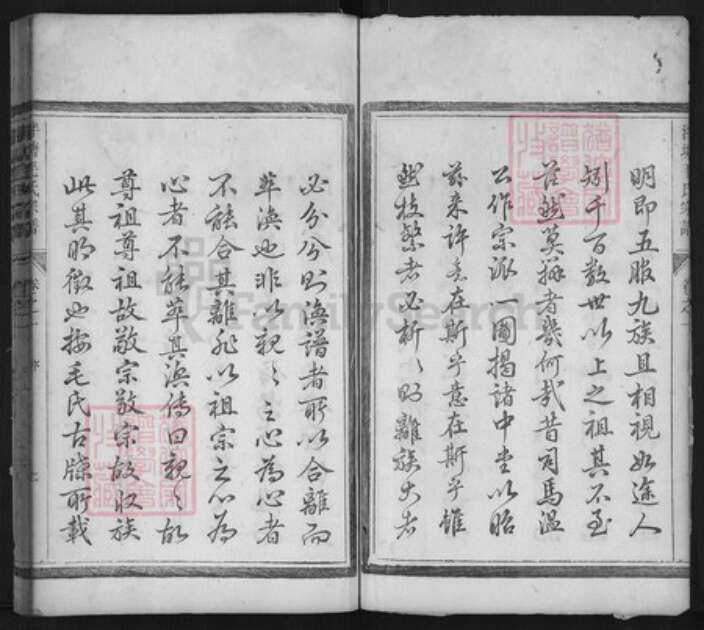 明即五服九族且相視如途人
矧千百數世以上之祖其不至
茫然莫辨者幾何哉昔司馬溫
公作宗派一圖揭諸中堂以昭
茲来許意在斯乎意在斯乎雖
然枝繁者必析〻則離族大者
必分分則渙譜者所以合離而
萃渙也非以親〻之心為心者
不能合其離非以祖宗之心為
心者不能萃其渙傳曰親〻故
尊祖尊祖故敬宗敬宗故收族
此其明徵也按毛氏古牒所載
FamilySearch